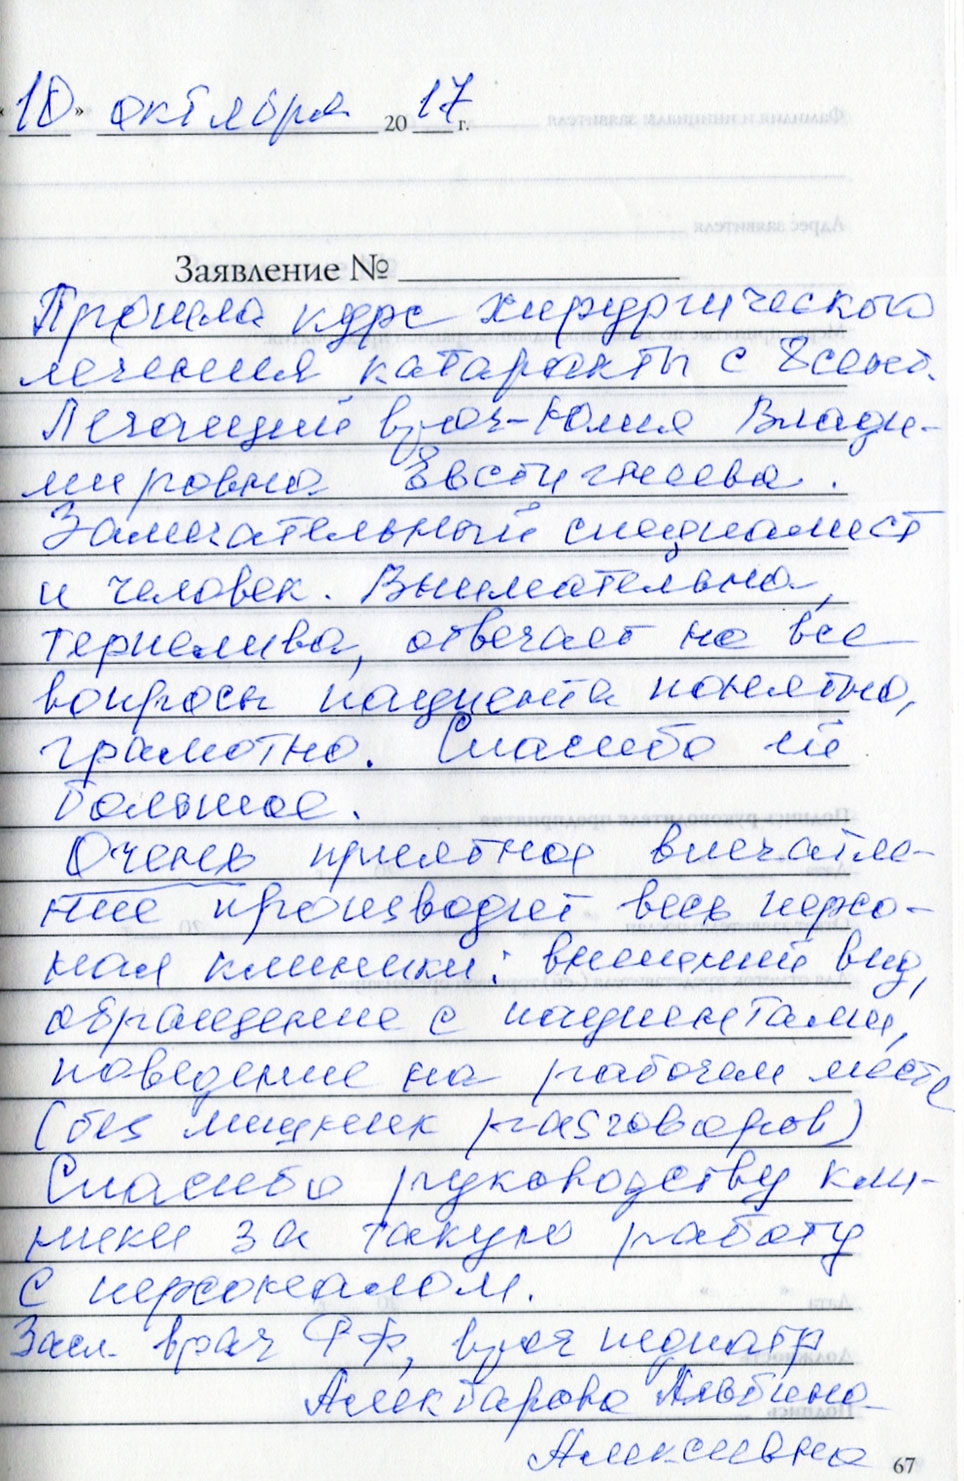 «10» октября 2017 г.
Заявление №
Прошла курс хирургического
лечения катаракты с 8 сент.
Лечащий врач - Юлия Влади-
мировна Евстигнеева.
Замечательный специалист
и человек. Внимательна,
терпелива, отвечает на все
вопросы пациента понятно,
грамотно. Спасибо ей
большое.
Очень приятное впечатле-
ние производит весь персо-
нал клиники: внешний вид,
обращение с пациентами,
поведение на рабочем месте
(без лишних разговоров)
Спасибо руководству кли-
ники за такую работу
с персоналом.
Засл. врач РФ, врач педиатр
Альбина
Алексеевна
67